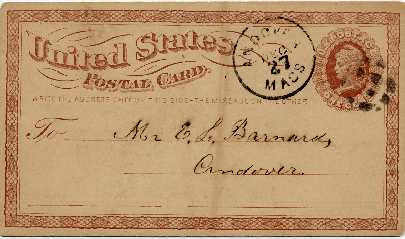 United States
POSTAL CARD.
WRITE THE ADDRESS ONLY ON THIS SIDE-THE MESSAGE ON THE OTHER
ANDOVER
DEC
27
MASS
To Mr E. L. Barnard,
Andover.